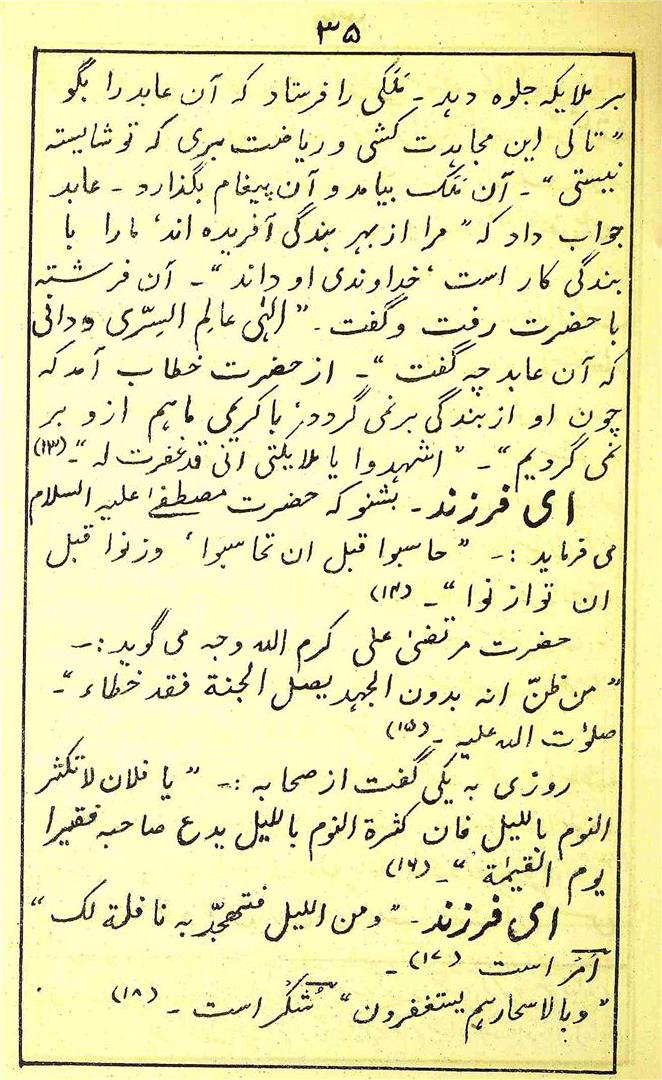 ۳۵
بر ملایکه جلوه دہد ۔ مَلَکی را فرستاد که آن عابد را بگو
”تا کی این مجاہدت کشی و ریاضت بری که تو شایسته
نیستی“ ۔ آن مَلَک بیامد و آن پیغام بگذارد ۔ عابد
جواب داد که ”مرا از بہر بندگی آفریده اند، مارا با
بندگی کار است، خداوندی او داند“ ۔ آن فرشته
با حضرت رفت و گفت ۔ ”الٰہی عالِم السِرّی و دانی
که آن عابد چه گفت“ ۔ از حضرت خطاب آمد که
چون او از بندگی برنمی گردد، با کریمی ما ہم ازو بر
نمی گردیم“ ۔ ”اشہدوا یا ملایکتی انی قد غفرت له“ ۔ (۱۳)
ای فرزند ۔ بشنو که حضرت مصطفےٰ علیه السلام
می فرماید :۔ ”حاسبوا قبل ان تحاسبوا، وزنوا قبل
ان توازنوا“ ۔ (۱۴)
حضرت مرتضیٰ علی کرم الله وجه می گوید :۔
”من ظنّ انه بدون الجہد یصل الجنة فقد خطاء“ ۔
صلوٰت الله علیه ۔ (۱۵)
روزی به یکی گفت از صحابه :۔ ”یا فلان لا تکثر
النوم باللیل فان کثرة النوم باللیل یدع صاحبه فقیرا
یوم القیٰمة“ ۔ (۱۶)
ای فرزند ۔ ”ومن اللیل فتہجّد به نافلة لک“
اَمر است (۱۷) ۔
”وبالاسحار ہم یستغفرون“ شُکر است ۔ (۱۸)